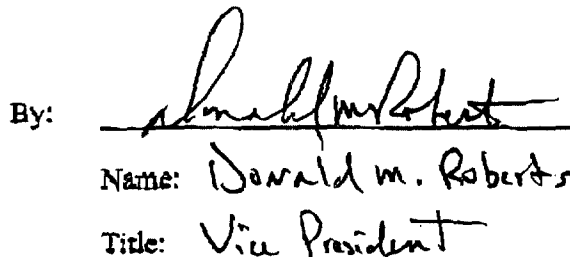 By: Donald M Roberts
Name: Donald M. Roberts
Title: Vice President